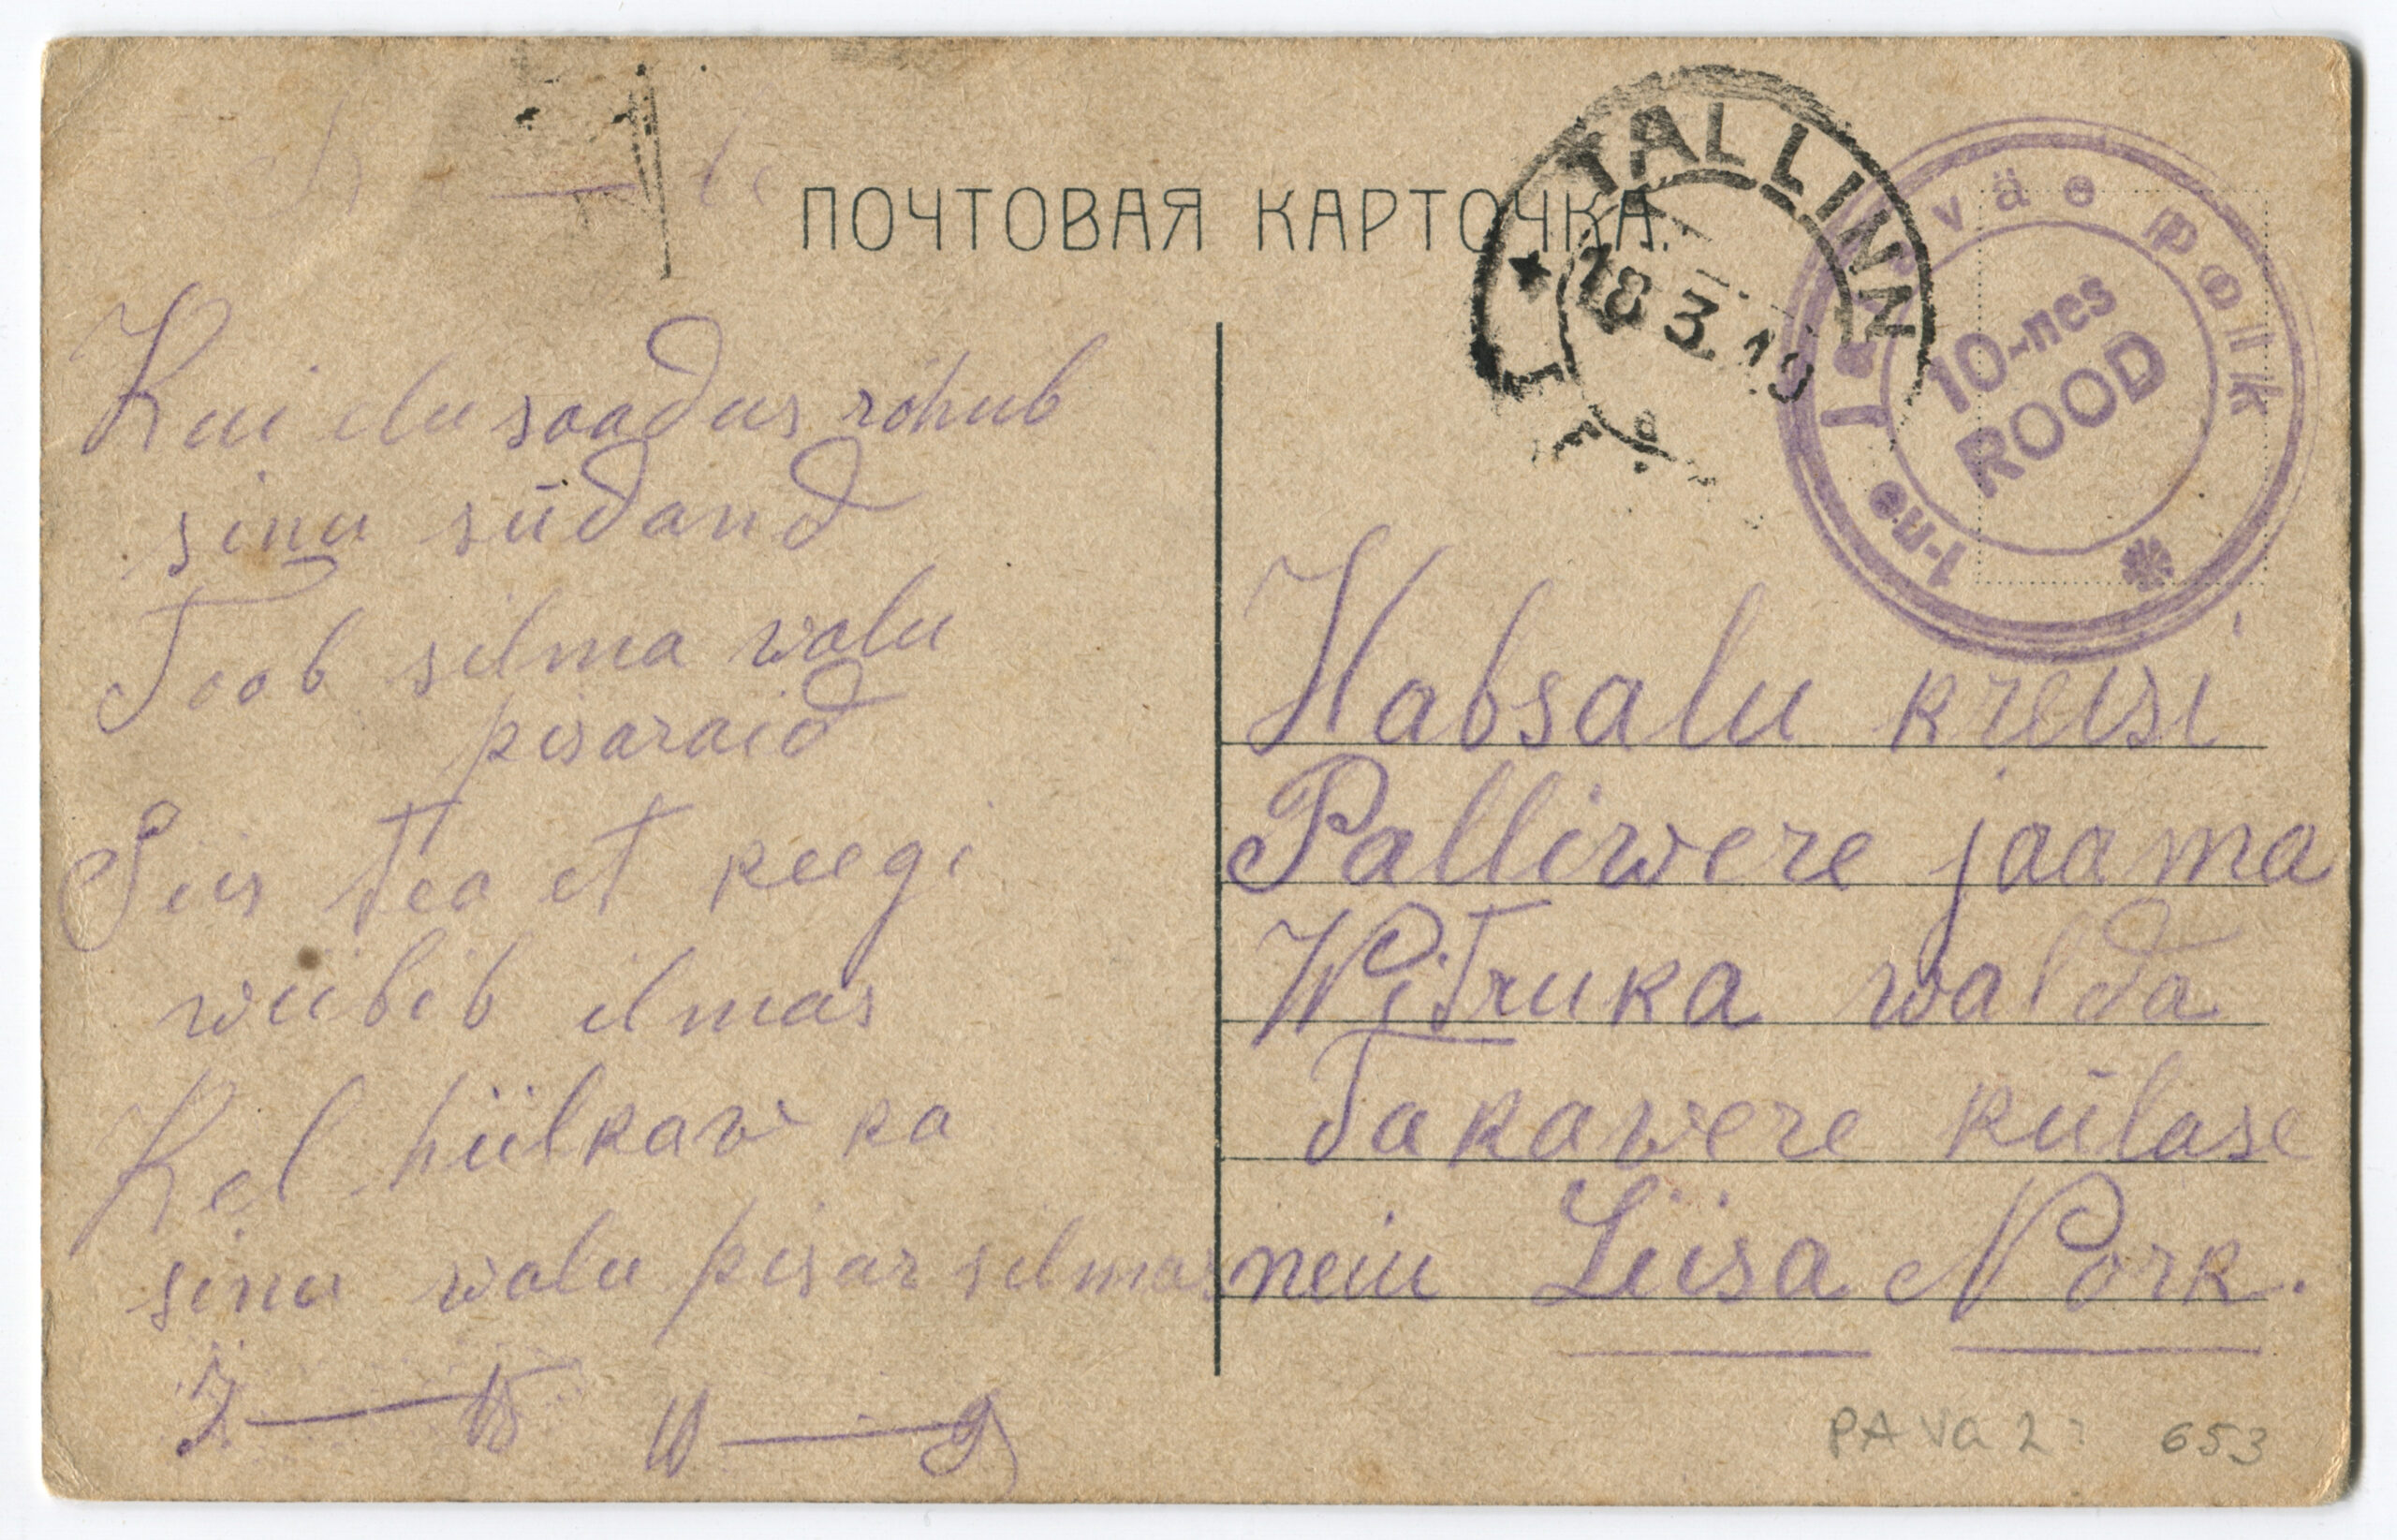 ПОЧТОВАЯ КАРТОЧКА.
TALLINN
18 3. 19
1-ne Jalaväe Polk
10-nes
ROOD
Kui elu saadus rõhub
sinu südand
Toob silma walu
pisaraid
Siis tea et keegi
wiibib ilmas
Kel hiilkaw ka
sinu walu pisar silmas
Habsalu kreisi
Palliwere jaama
Witruka walda
Takawere külase
neiu Liisa Nork.
PA Va 2: 653